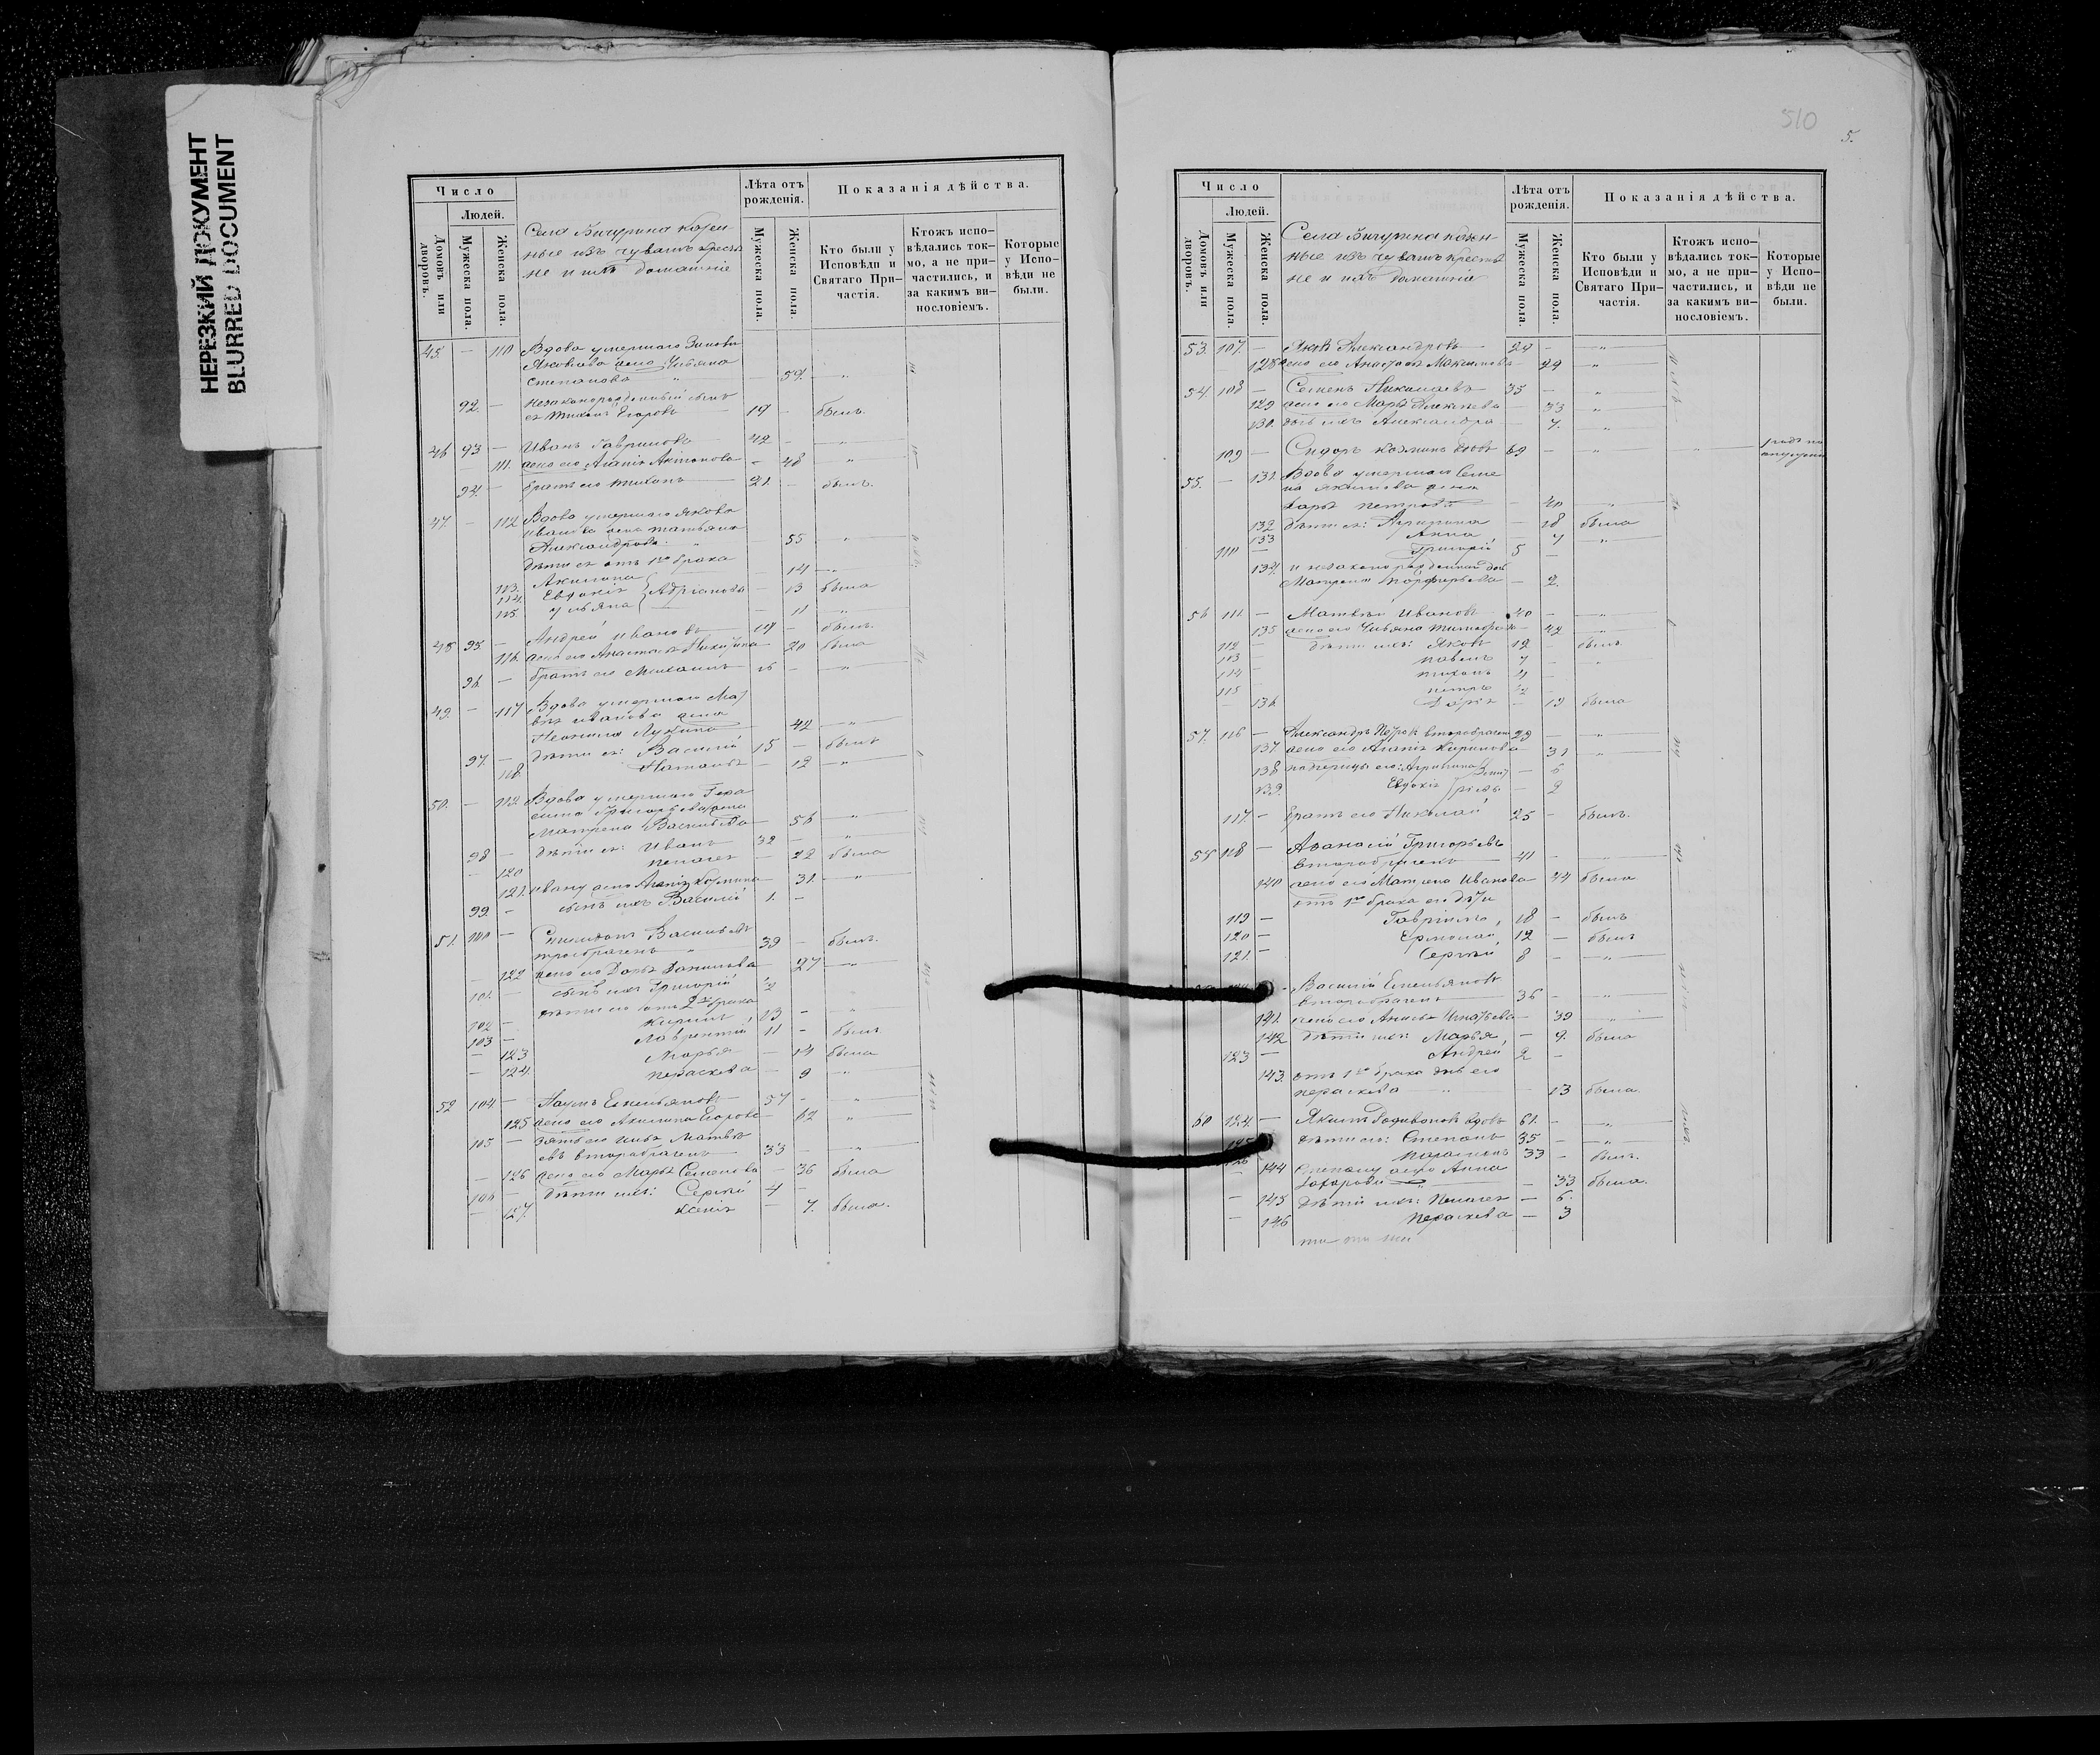 НЕРЕЗКИЙ ДОКУМЕНТ
BLURRED DOCUMENT
Число
Людей.
Домовъ или дворовъ.
Мужеска пола.
Женска пола.
Села Бичурина казен-
ные изъ чувашъ крестья
не и ихъ домашніе
Лѣта отъ рожденія.
Мужеска пола.
Женска пола.
Показанія дѣйства.
Кто были у Исповѣди и Святаго При-частія.
Ктожъ испо-вѣдались ток-мо, а не при-частились, и за какимъ ви-нословіемъ.
Которые у Испо-вѣди не были.
45. — 110 Вдова умершаго
Яковлева жена Ульяна
Степанова — 59. „
92. — незаконорожденный сынъ
ея Тихонъ Егоровъ 19 — былъ.
46 93 — Иванъ Гавриловъ 42 — „
111. жена его Агапія — 48 „
94. — братъ его Тихонъ 21. — былъ.
47. — 112 Вдова умершаго Якова
Иванова жена Татьяна
Александрова — 55 „
дѣти ея отъ 1го брака
113. Акилина — 14 — „
114. Евдокія Адріановы — 13 была
115. Ульяна — 11 „
48 95. — Андрей Ивановъ 19 — былъ.
116. жена его Анастасія Никитина 20 была
96. — братъ его Михаилъ 16 — „
49. — 117 Вдова умершаго Мат
вѣя Иванова жена
Неонила Лукина 42 „
97. — дѣти ея: Василій 15 — былъ
118. Наталья — 12 „
50. — 119 Вдова умершаго Гера
сима Григорьева жена
Матрена Васильева 56 „
98 — дѣти ея: Иванъ 32 — „
— 120 Пелагея — 22 была
121. Ивану жена Агапія Козмина 31. „
99. — сынъ ихъ Василій 1. —
51. 100 — Спиридонъ Васильевъ
троебраченъ 39 — былъ.
— 122 жена его Дарья Данилова 27 „
101. — сынъ ихъ Григорій
дѣти его отъ 2го брака
102 — Кирилъ 13 — „
103 — Лаврентій 11 — былъ
— 123 Марья — 14 была
— 124. Параскева — 9 „
52 104 — Наумъ Емельяновъ 57 — „
125 жена его Акилина Егорова 62 „
105 — зять его Илья Матвѣ
евъ второбраченъ 33 — „
— 126 жена его Марья Семенова — 36 была
106 — дѣти ихъ: Сергѣй 4 —
— 127. Ксенія — 7. была.
510
5.
Число
Людей.
Домовъ или дворовъ.
Мужеска пола.
Женска пола.
Села Бичурина казен-
ные изъ чувашъ крестья
не и ихъ домашніе
Лѣта отъ рожденія.
Мужеска пола.
Женска пола.
Показанія дѣйства.
Кто были у Исповѣди и Святаго При-частія.
Ктожъ испо-вѣдались ток-мо, а не при-частились, и за какимъ ви-нословіемъ.
Которые у Испо-вѣди не были.
53. 107. — Яковъ Александровъ 29 — „
128 жена его Анастасья Максимова 29 „
54. 108 — Семенъ Николаевъ 35 — „
129 жена его Марья Алексѣева — 33 „
130. дочь ихъ Александра — 7. „
109 — Сидоръ Козминъ вдовъ 69 — „
55. — 131. Вдова умершаго Семе
на Якимова жена
Дарья Петрова — 40 „
132 дѣти ея: Агрипина — 18 была
133 Анна — 7 „
110 — Григорій 5 —
134 и незаконорожденная дочь
Матрена Порфирьева — 2.
56 111. — Матвѣй Ивановъ 40 — „
135 жена его Ульяна Тимофеева — 42 „
112 — дѣти ихъ: Яковъ 12 — былъ
113 — Павелъ 7 — „
114 — Тихонъ 4 —
115 — Петръ —
— 136 Дарья — 19 была
57. 116 — Александръ Петровъ второбраченъ 29 — „
137 жена его Агапія Кирилова — 31 „
138 падчерицы его: Агрипина — 6
139. Евдокія — 2
117. — братъ его Николай 25 — былъ.
118 — Аѳанасій Григорьевъ
второбраченъ 41 — „
140 жена его Матрена Иванова 44 была
отъ 1го брака его дѣти
119 — Гавріилъ 18 — былъ
120 — Ермолай 12 — былъ
121. — Сергѣй 8 — „
Василій Емельяновъ
второбраченъ 36 — „
141. жена его Анисья Игнатьева — 39 „
142 дѣти ихъ: Марья, — 9. была
123 — Андрей 2 —
143. отъ 1го брака дочь его
Параскева — 13 была.
60 124. — Якимъ Родивоновъ вдовъ 61. — „
дѣти его: Степанъ 35 — „
126 33 — былъ.
144 Степану жена Анна
Захарова — 33 была.
— 145 дѣти ихъ: Пелагея — 6.
— 146 Параскева — 3